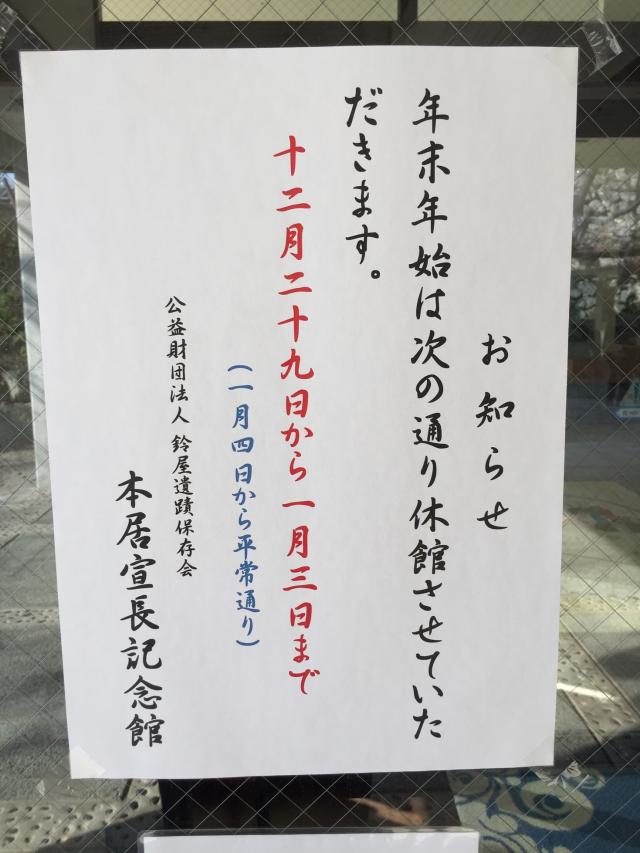 お知らせ
年末年始は次の通り休館させていた
だきます。
十二月二十九日から一月三日まで
(一月四日から平常通り)
公益財団法人 鈴屋遺蹟保存会
本居宣長記念館